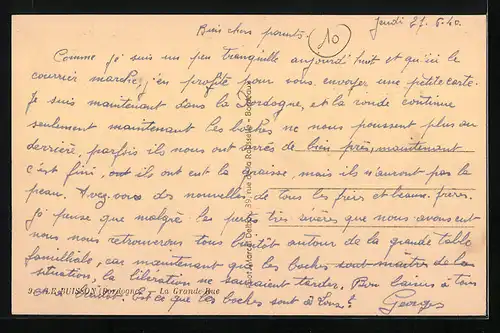 Jeudi 27. 6. 40.
Bien chers parents.
10
Comme je suis un peu tranquille aujourd'huit et qu'ici le
courrier marche, j'en profite pour vous envoyer une petite carte.
Je suis maintenant dans la Dordogne, et la ronde continue
seulement maintenant les boches ne nous poussent plus au
derrière, parfois ils nous ont serrés de bien près, maintenant
c'est fini, ils ont eut la graisse, mais ils n'auront pas la
peau. Avez-vous des nouvelles de tous les frères et beaux-frères.
J'ai pense que malgré les pertes très sévères que nous avons eut
nous nous retrouverons tous bientôt autour de la grande table
familliale, car maintenant que les boches sont maitre de la
situation, la libération ne saurait tarder. Bon baisers à tous
et à bientôt. Est ce que les boches sont à Tours?
Georges
LE BUISSON (Dordogne) - La Grande Rue
39, rue de la Rousselle - Bordeaux